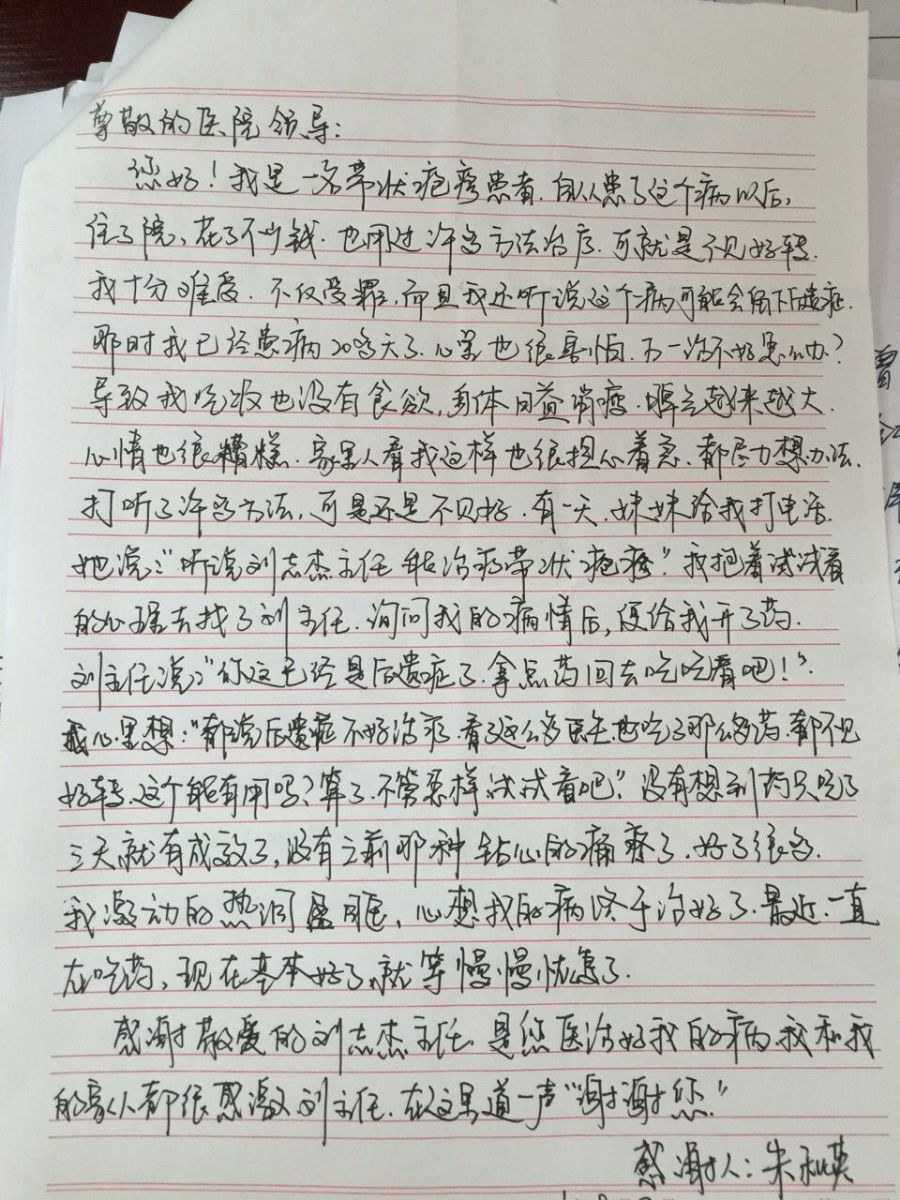 尊敬的医院领导：
您好！我是一名带状疱疹患者.自从患了这个病以后,
住了院,花了不少钱.也用过许多方法治疗.可就是不见好转.
我十分难受.不仅受罪,而且我还听说这个病可能会留下后遗症.
那时我已经患病20多天了.心里也很害怕.万一治不好怎么办?
导致我吃饭也没有食欲,身体日益消瘦.噪音越来越大.
心情也很糟糕.家里人看我这样也很担心着急.都尽力想办法.
打听了许多方法,可是还是不见好.有一天.妹妹给我打电话.
她说:"听说刘志杰主任能治疗带状疱疹".我抱着试试看
的心理去找了刘主任.询问我的病情后,便给我开了药.
刘主任说:"你这已经是后遗症了.拿点药回去吃吃看吧!".
我心里想:"都说后遗症不好治疗.看了这么多医生也吃了那么多药.都不见
好转.这个能有用吗?算了.不管怎样试试看吧".没有想到药只吃了
三天就有成效了,没有之前那种钻心的痛疼了.好了很多.
我激动的热泪盈眶,心想我的病终于治好了.最近一直
在吃药,现在基本好了,就等慢慢恢复了.
感谢敬爱的刘志杰主任.是您医治好我的病.我和我
的家人都很感激刘主任.在这里道一声"谢谢您."
感谢人:朱秋英